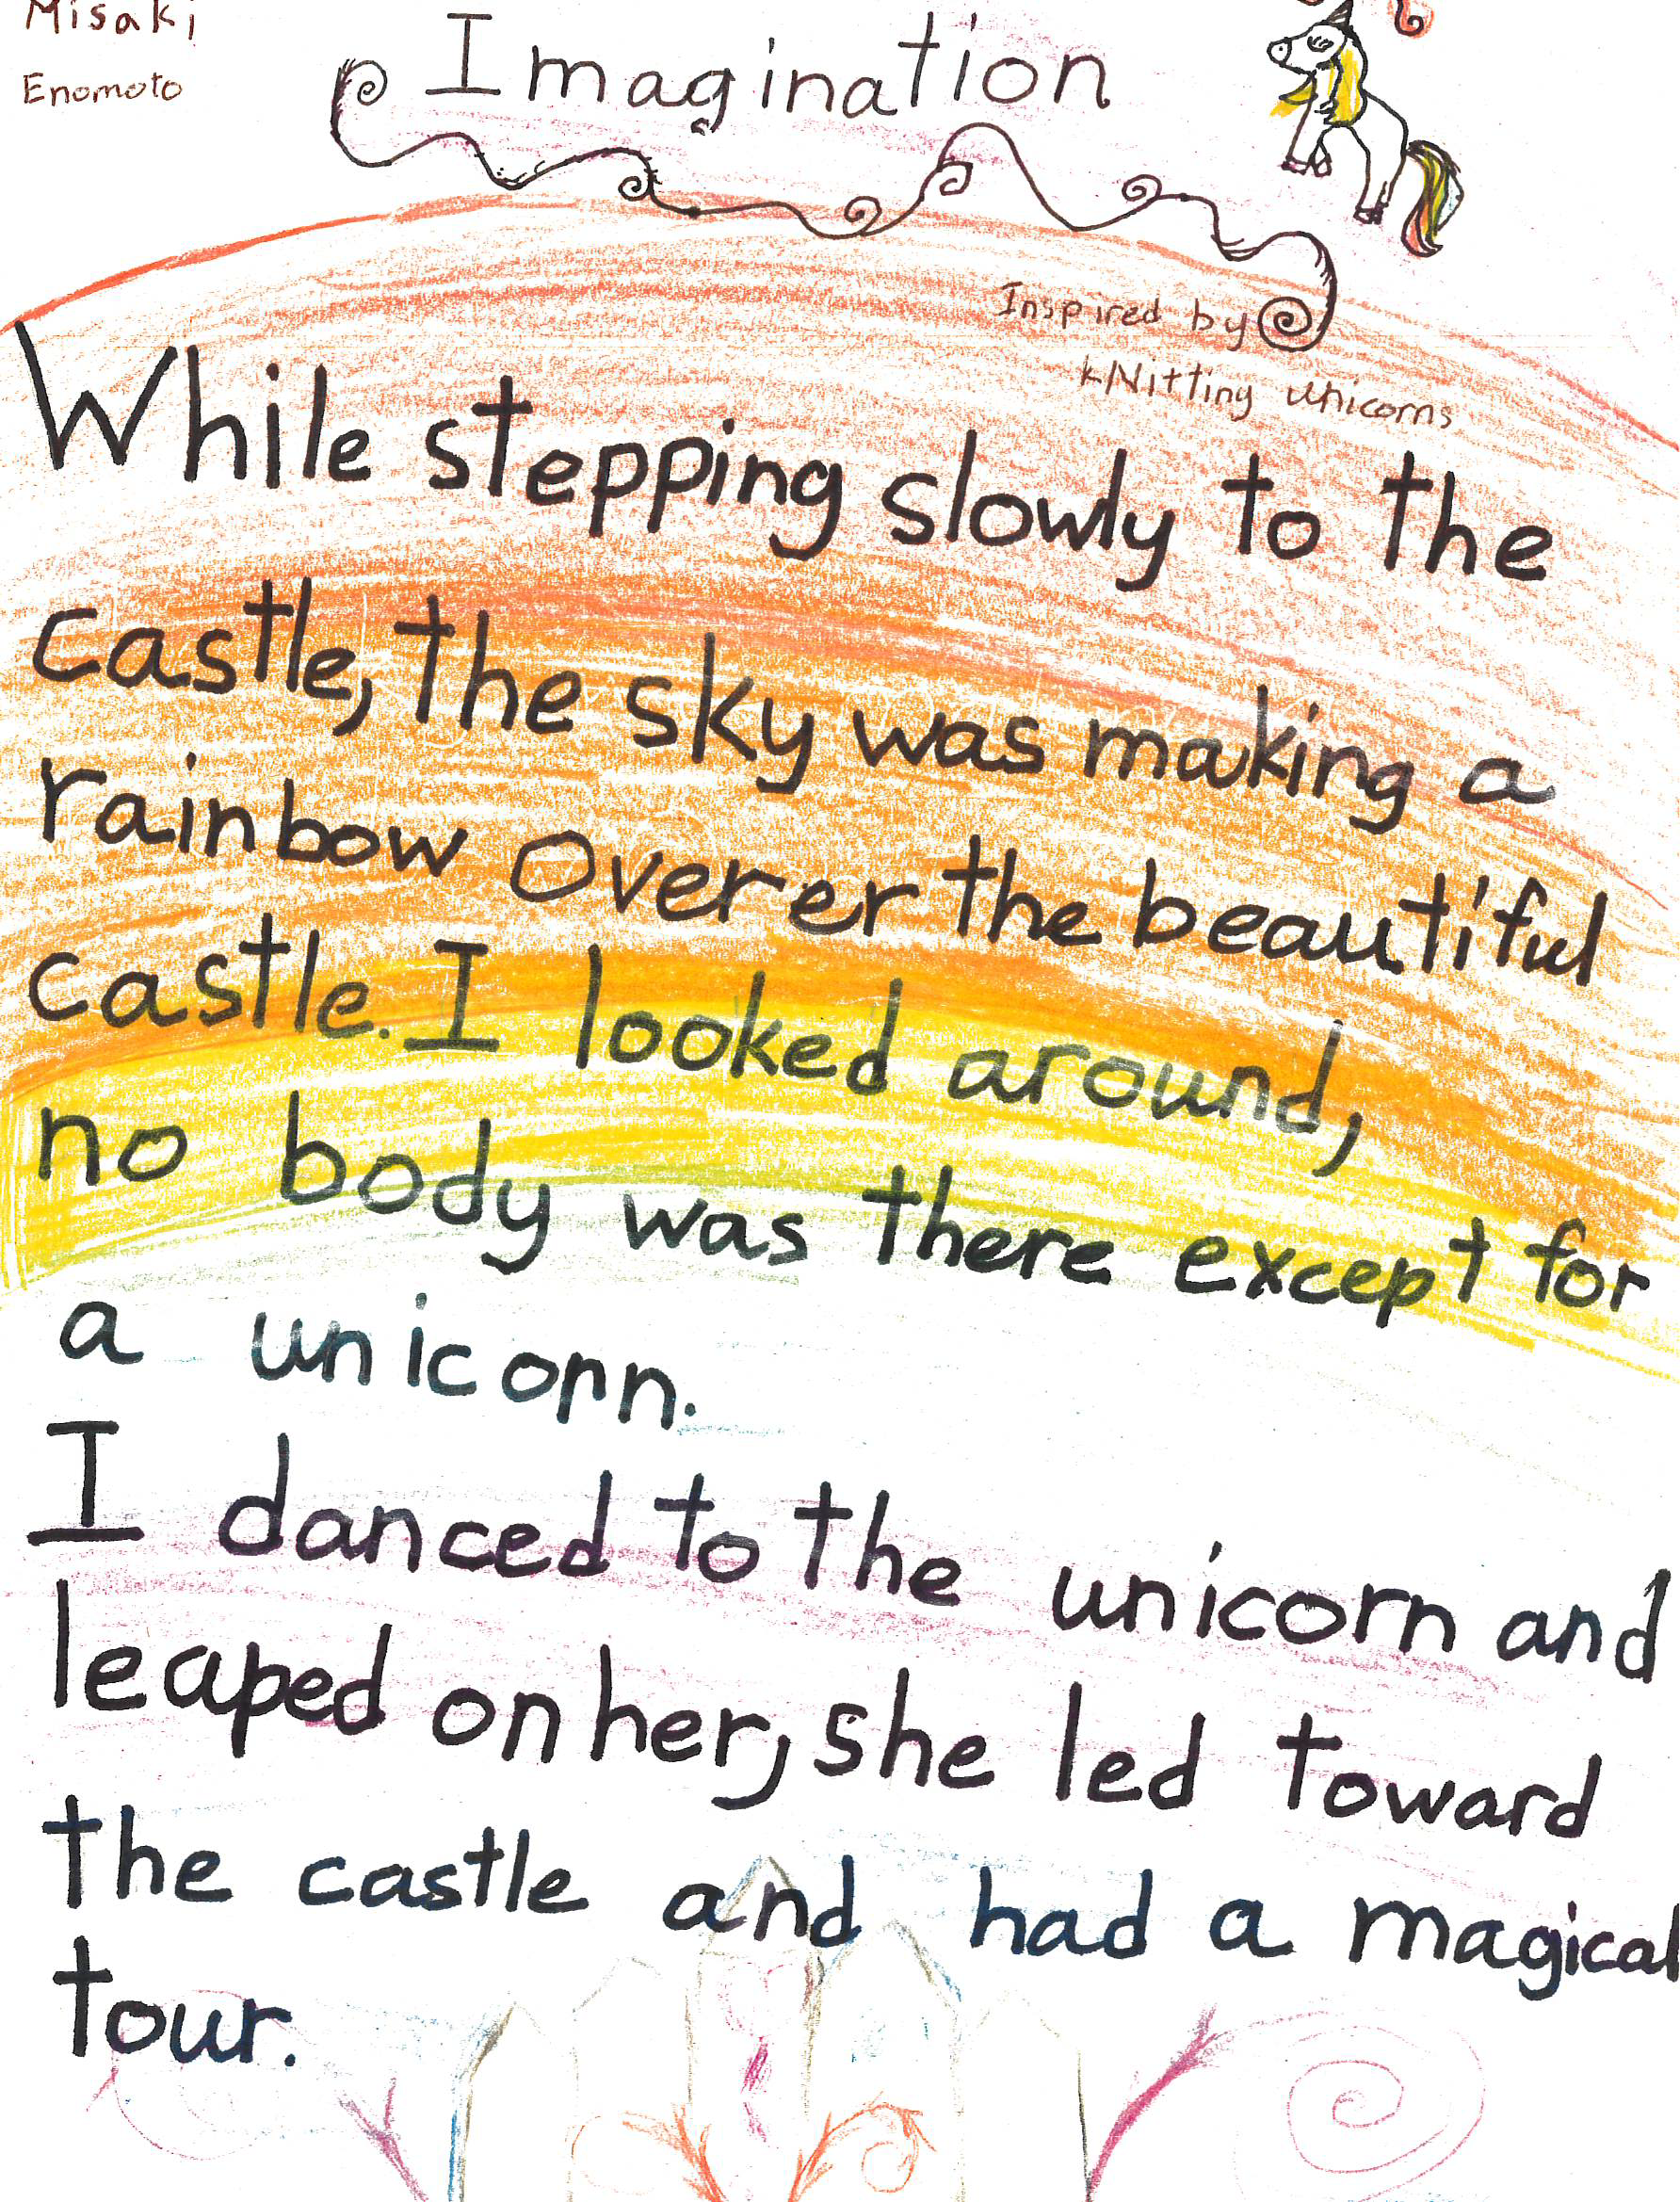 Misaki
Enomoto
Imagination
Inspired by
kNitting unicorns
While stepping slowly to the
castle, the sky was making a
rainbow overer the beautiful
castle. I looked around,
no body was there except for
a unicorn.
I danced to the unicorn and
leaped on her, she led toward
the castle and had a magical
tour.